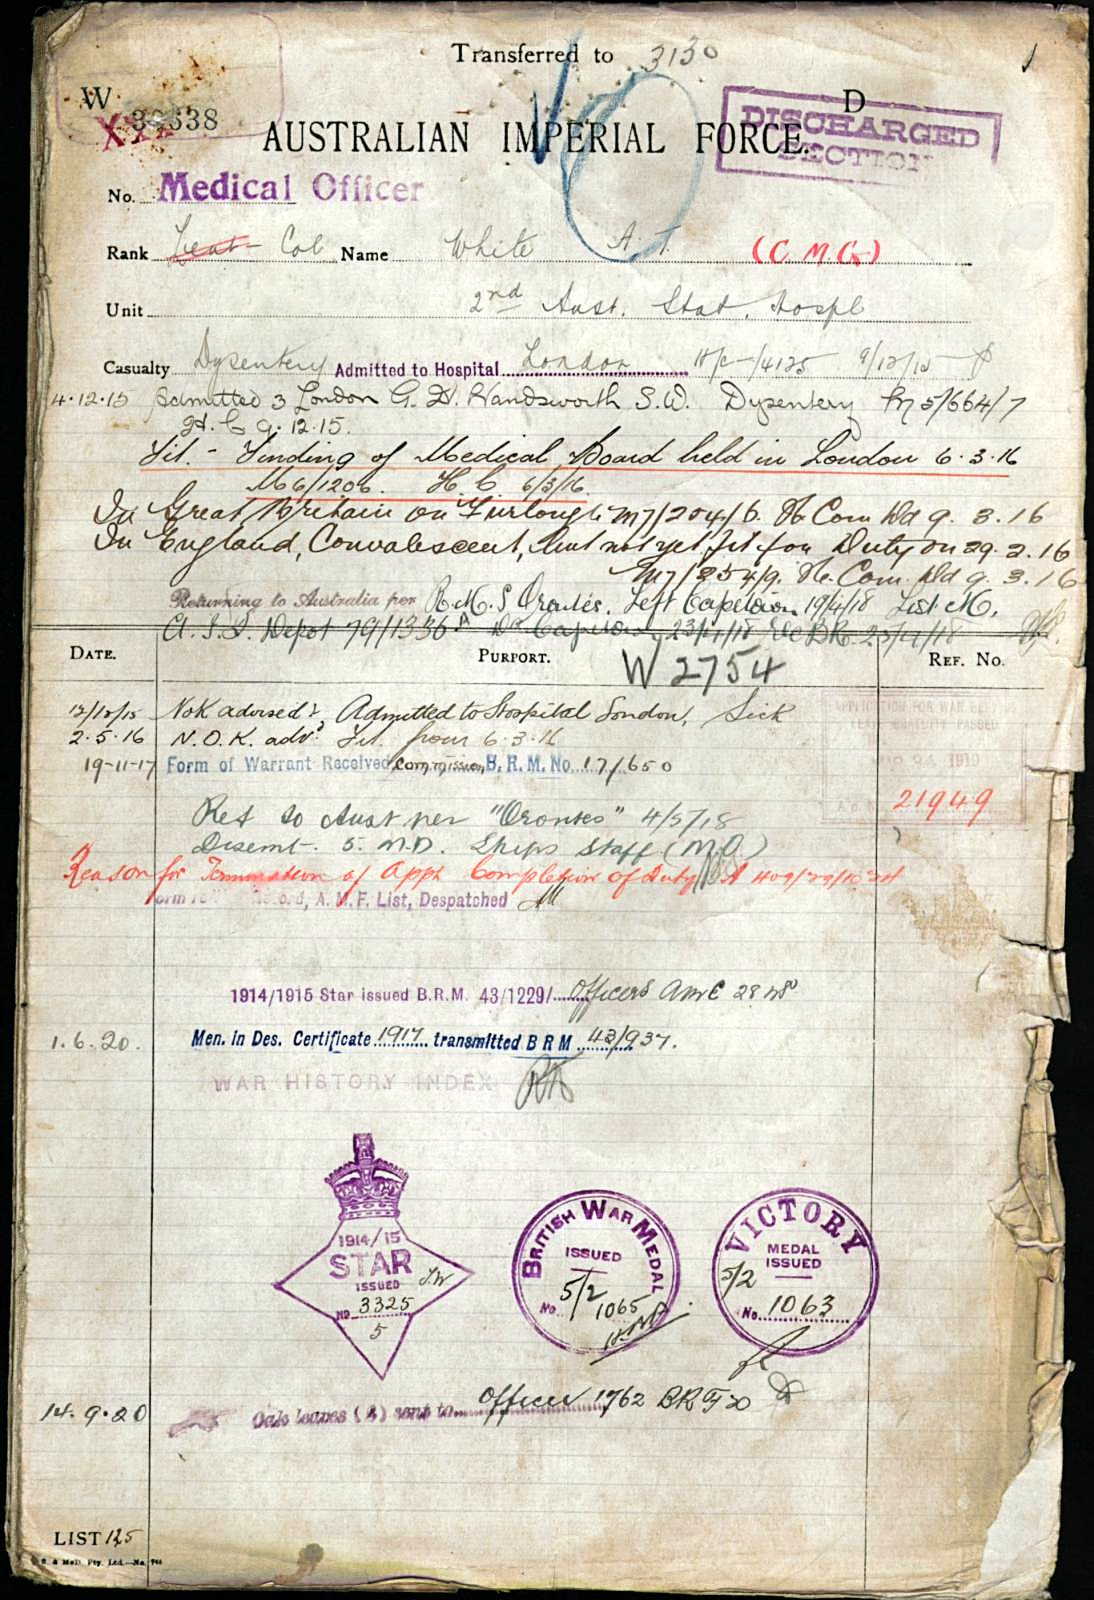 Transferred to 3130
W D
DISCHARGED
SECTION
AUSTRALIAN IMPERIAL FORCE.
No. Medical Officer
Rank Lieut Col Name White A. T. (C.M.G)
Unit 2nd Aust. Stat. Hospl
Casualty Dysentery Admitted to Hospital London 9/12/15
4.12.15 Admitted 3 London G. H. Wandsworth S.W. Dysentery M5/664/7
H.C 9.12.15.
Fit. - Finding of Medical Board held in London 6.3.16
M6/1206. H.C. 6/3/16.
In Great Britain on Furlough M7/204/6. H Com Wd 9.3.16
In England, Convalescent, but not yet fit for Duty on 29.2.16
M7/254/9. H. Com. Wd 9.3.16
Returning to Australia per R.M.S Orontes. Left Capetown 19/4/18 List
A.I.F. Depot 79/1336 Capetown 23/4/18
DATE. PURPORT. REF. No.
W 2754
12/12/15 NoK advised, Admitted to Hospital London, Sick
2.5.16 N.O.K. adv. Fit. from 6.3.16
19-11-17 Form of Warrant Received, Commission, B.R.M. No. 17/650
APPLICATION FOR WAR
1919
21949
Ret to Aust per "Orontes" 4/5/18
Disemt. 5. M.D. Ships Staff (M.O)
Reason for Termination of Appt Completion of Duty
A.M.F. List, Despatched
1914/1915 Star issued B.R.M. 43/1229/ Officers AMC
1.6.20. Men. in Des. Certificate 1917 transmitted B R M 43/937.
WAR HISTORY INDEX
1914/15
STAR
ISSUED
No 3325
5
BRITISH WAR MEDAL
ISSUED
5/2
No. 1065
VICTORY
MEDAL
ISSUED
5/2
No. 1063
14.9.20 Oak leaves (4) sent to Officer 1762
LIST 125